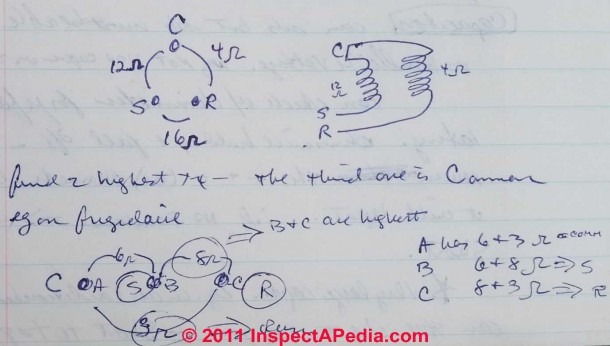 C
12Ω 4Ω
S R
16Ω
C
12Ω 4Ω
S
R
find 2 highest rx — the third one is Common
eg on frigidaire
⇒ B + C are highest
6Ω 8Ω
C A S B C R
3Ω ⇒
A has 6+3 Ω = comm
B 6+8 Ω ⇒ S
C 8+3 Ω ⇒ R
© 2011 InspectAPedia.com